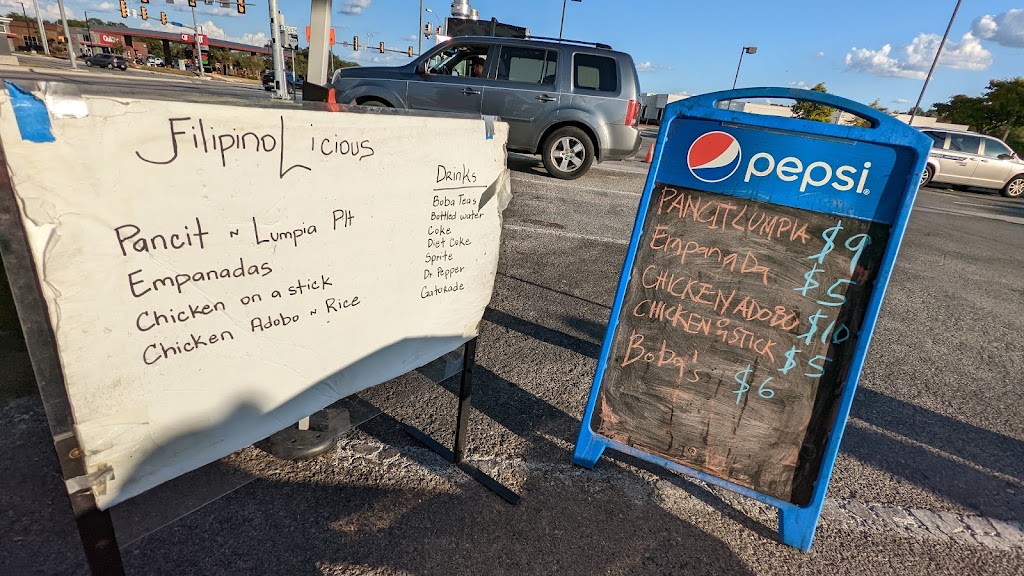 Filipino Licious
Pancit ~ Lumpia Plt
Empanadas
Chicken on a stick
Chicken Adobo ~ Rice
Drinks
Boba Teas
Bottled water
Coke
Diet Coke
Sprite
Dr Pepper
Gatorade
pepsi
PANCIT LUMPIA $9
EmpanaDa $5
CHICKEN ADOBO $10
CHICKEN on a STICK $5
BoBa's $6